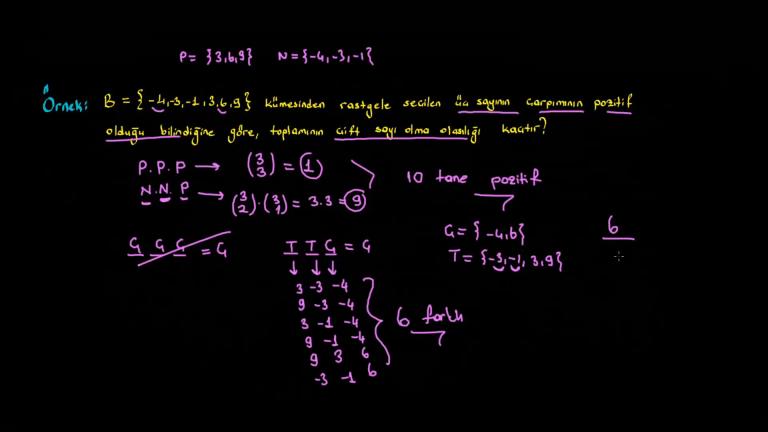 P = {3,6,9} N = {-4,-3,-1}
Örnek: B = {-4,-3,-1,3,6,9} kümesinden rastgele seçilen üç sayının çarpımının pozitif
olduğu bilindiğine göre, toplamının çift sayı olma olasılığı kaçtır?
P.P.P → (3 3) = 1
N.N.P → (3 2).(3 1) = 3.3 = 9
10 tane pozitif
Ç Ç Ç = Ç
T T Ç = Ç
Ç = {-4,6}
T = {-3,-1,3,9}
6
3 -3 -4
9 -3 -4
3 -1 -4
9 -1 -4
9 3 6
-3 -1 6
6 farklı